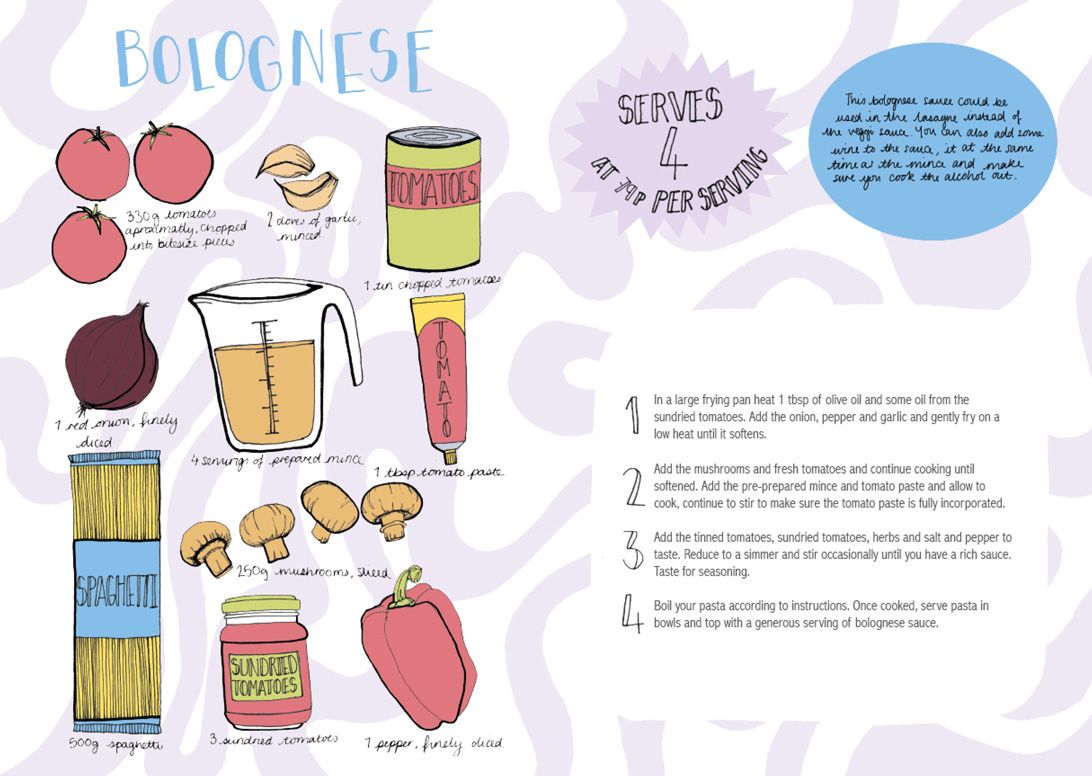 BOLOGNESE
330g tomatoes
aproximatly, chopped
into bitesize pieces
2 cloves of garlic,
minced.
TOMATOES
1 tin chopped tomatoes
1 red onion, finely
diced
4 servings of prepared mince
TOMATO
1 tbsp tomato paste
SPAGHETTI
500g spaghetti
250g mushrooms, sliced
SUNDRIED
TOMATOES
3 sundried tomatoes
1 pepper, finely diced.
SERVES
4
AT 79p PER SERVING
This bolognese sauce could be
used in the lasagne instead of
the veggi sauce. You can also add some
wine to the sauce, it at the same
time as the mince and make
sure you cook the alcohol out.
1 In a large frying pan heat 1 tbsp of olive oil and some oil from the
sundried tomatoes. Add the onion, pepper and garlic and gently fry on a
low heat until it softens.
2 Add the mushrooms and fresh tomatoes and continue cooking until
softened. Add the pre-prepared mince and tomato paste and allow to
cook, continue to stir to make sure the tomato paste is fully incorporated.
3 Add the tinned tomatoes, sundried tomatoes, herbs and salt and pepper to
taste. Reduce to a simmer and stir occasionally until you have a rich sauce.
Taste for seasoning.
4 Boil your pasta according to instructions. Once cooked, serve pasta in
bowls and top with a generous serving of bolognese sauce.